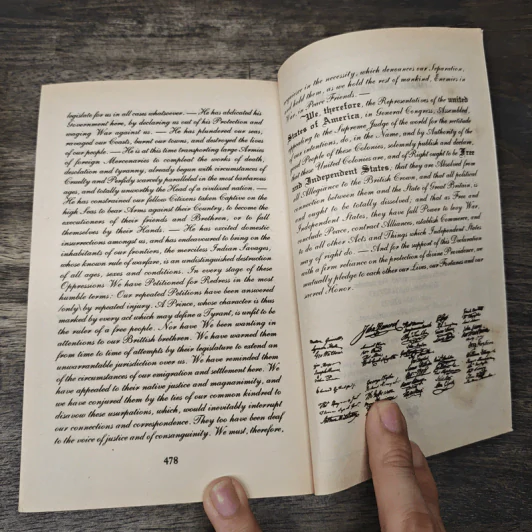 legislate for us in all cases whatsoever. — He has abdicated his
Government here, by declaring us out of his Protection and
waging War against us. — He has plundered our seas,
ravaged our Coasts, burnt our towns, and destroyed the lives
of our people. — He is at this time transporting large Armies
of foreign Mercenaries to compleat the works of death,
desolation and tyranny, already begun with circumstances of
Cruelty and Perfidy scarcely paralleled in the most barbarous
ages, and totally unworthy the Head of a civilized nation. —
He has constrained our fellow Citizens taken Captive on the
high Seas to bear Arms against their Country, to become the
executioners of their friends and Brethren, or to fall
themselves by their Hands. — He has excited domestic
insurrections amongst us, and has endeavoured to bring on the
inhabitants of our frontiers, the merciless Indian Savages,
whose known rule of warfare, is an undistinguished destruction
of all ages, sexes and conditions. In every stage of these
Oppressions We have Petitioned for Redress in the most
humble terms: Our repeated Petitions have been answered
only by repeated injury. A Prince, whose character is thus
marked by every act which may define a Tyrant, is unfit to be
the ruler of a free people. Nor have We been wanting in
attentions to our Brittish brethren. We have warned them
from time to time of attempts by their legislature to extend an
unwarrantable jurisdiction over us. We have reminded them
of the circumstances of our emigration and settlement here. We
have appealed to their native justice and magnanimity, and
we have conjured them by the ties of our common kindred to
disavow these usurpations, which, would inevitably interrupt
our connections and correspondence. They too have been deaf
to the voice of justice and of consanguinity. We must, therefore,
478
acquiesce in the necessity, which denounces our Separation,
and hold them, as we hold the rest of mankind, Enemies in
War, in Peace Friends. —
We, therefore, the Representatives of the united
States of America, in General Congress, Assembled,
appealing to the Supreme Judge of the world for the rectitude
of our intentions, do, in the Name, and by Authority of the
good People of these Colonies, solemnly publish and declare,
That these United Colonies are, and of Right ought to be Free
and Independent States, that they are Absolved from
all Allegiance to the British Crown, and that all political
connection between them and the State of Great Britain, is
and ought to be totally dissolved; and that as Free and
Independent States, they have full Power to levy War,
conclude Peace, contract Alliances, establish Commerce, and
to do all other Acts and Things which Independent States
may of right do. — And for the support of this Declaration
with a firm reliance on the protection of divine Providence, we
mutually pledge to each other our Lives, our Fortunes and our
sacred Honor.
John Hancock